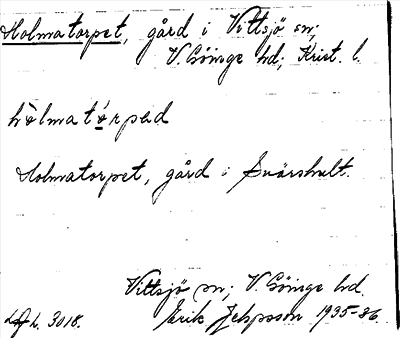 Holmatorpet, gård i Vittsjö sn;
V. Göinge hd; Krist. l.
hòlmatórpad
Holmatorpet, gård i Svärshult.
Vittsjö sn; V. Göinge hd.
h. 3018. Erik Jeppsson 1935-36.